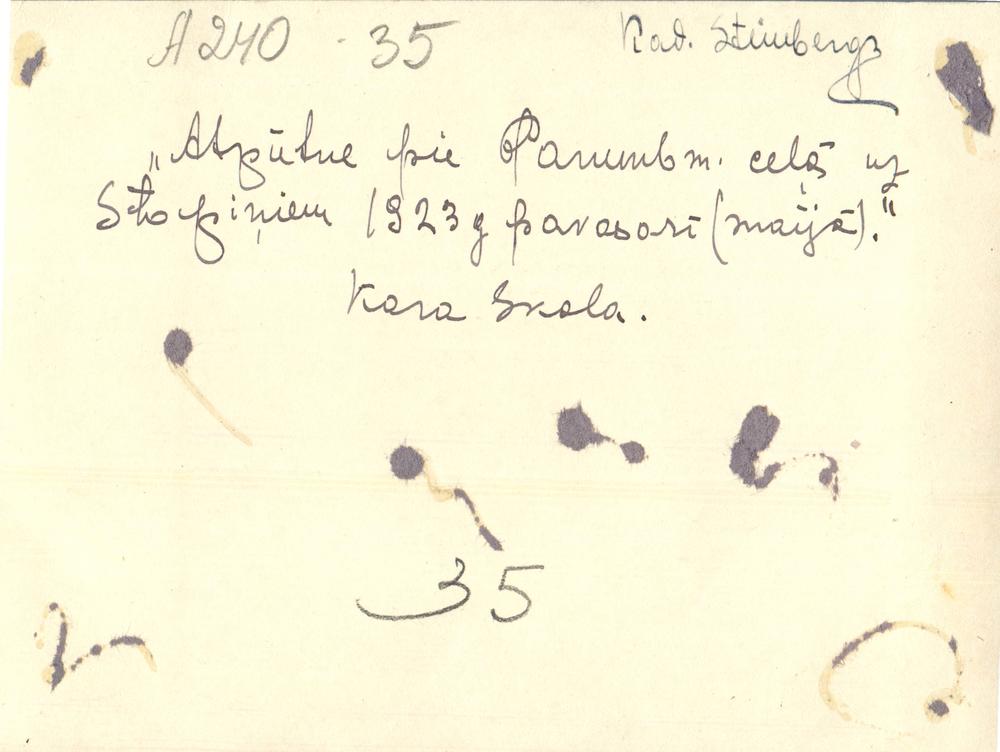 A240 - 35
Kad. Šteinbergs
„Atpūtne pie m. ceļā uz
Stopiņiem 1923 g pavasarī (maijā)."
Kara Skola.
35